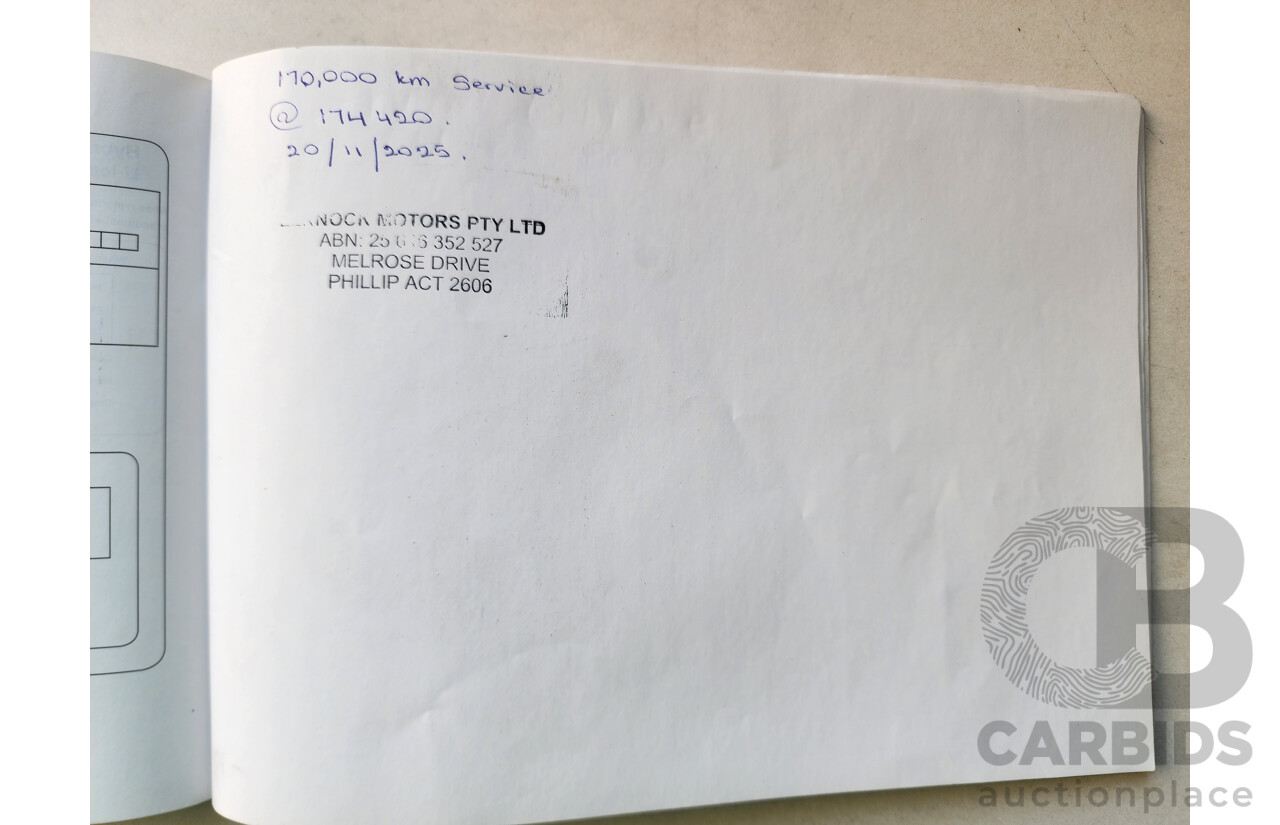 170,000 km Service
@ 174420.
20/11/2025.
MOTORS PTY LTD
ABN: 25 352 527
MELROSE DRIVE
PHILLIP ACT 2606
CB
CARBIDS
auctionplace